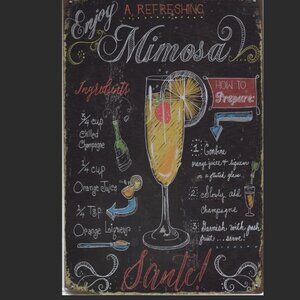 Enjoy
A REFRESHING
Mimosa
Ingredients
3/4 cup
Chilled
Champagne
1/4 cup
Orange Juice
1/4 Tsp
Orange Liqueur
HOW TO
Prepare:
1. Combine
orange juice & liqueur
in a fluted glass.
2. Slowly add
champagne
3. Garnish with fresh
fruit ... serve!
Santé!